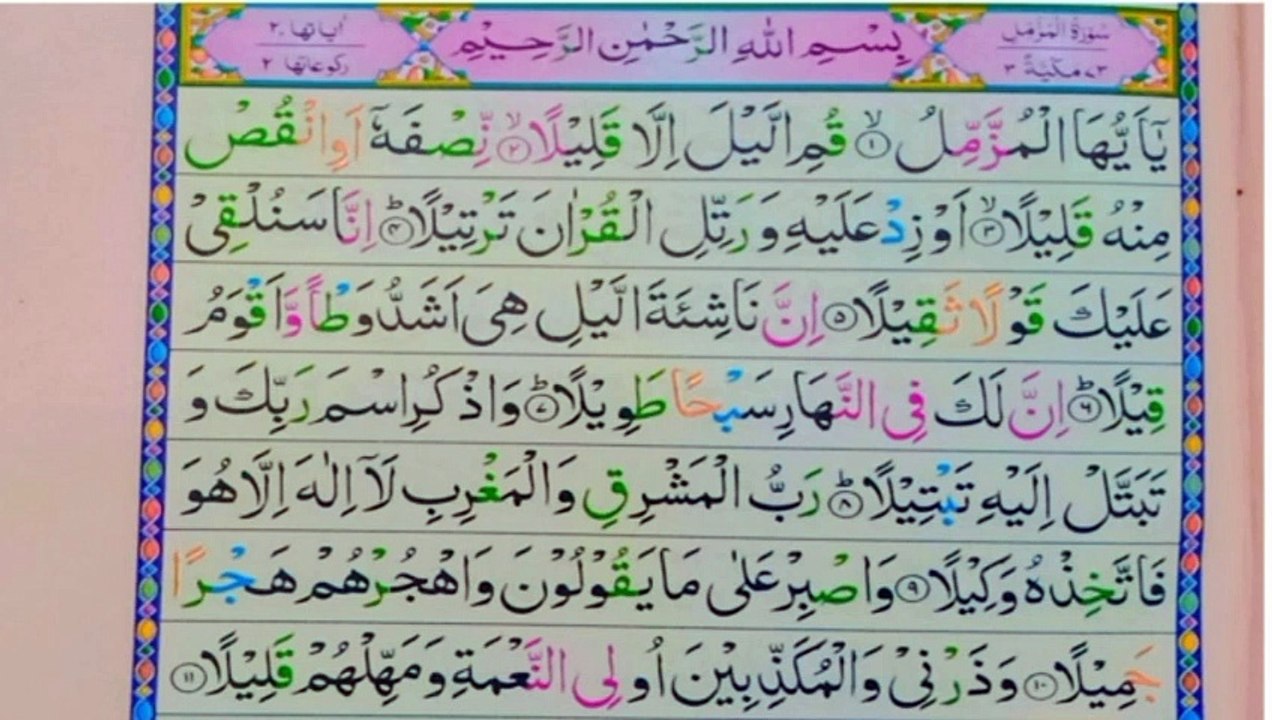 سورة المزمل
٧٣ مكية ٣
بِسْمِ اللهِ الرَّحْمٰنِ الرَّحِيْمِ
اٰياتها ٢٠
ركوعاتها ٢
يٰٓاَيُّهَا الْمُزَّمِّلُ ۙ﴿۱﴾ قُمِ الَّيْلَ اِلَّا قَلِيْلًا ۙ﴿۲﴾ نِّصْفَهٗٓ اَوِ انْقُصْ
مِنْهُ قَلِيْلًا ۙ﴿۳﴾ اَوْ زِدْ عَلَيْهِ وَ رَتِّلِ الْقُرْاٰنَ تَرْتِيْلًا ؕ﴿۴﴾ اِنَّا سَنُلْقِیْ
عَلَيْكَ قَوْلًا ثَقِيْلًا ﴿۵﴾ اِنَّ نَاشِئَةَ الَّيْلِ هِیَ اَشَدُّ وَطْاً وَّ اَقْوَمُ
قِيْلًا ؕ﴿۶﴾ اِنَّ لَكَ فِی النَّهَارِ سَبْحًا طَوِيْلًا ؕ﴿۷﴾ وَ اذْكُرِ اسْمَ رَبِّكَ وَ
تَبَتَّلْ اِلَيْهِ تَبْتِيْلًا ؕ﴿۸﴾ رَبُّ الْمَشْرِقِ وَ الْمَغْرِبِ لَاۤ اِلٰهَ اِلَّا هُوَ
فَاتَّخِذْهُ وَكِيْلًا ﴿۹﴾ وَ اصْبِرْ عَلٰی مَا يَقُوْلُوْنَ وَ اهْجُرْهُمْ هَجْرًا
جَمِيْلًا ﴿۱۰﴾ وَ ذَرْنِیْ وَ الْمُكَذِّبِيْنَ اُولِی النَّعْمَةِ وَ مَهِّلْهُمْ قَلِيْلًا ﴿۱۱﴾